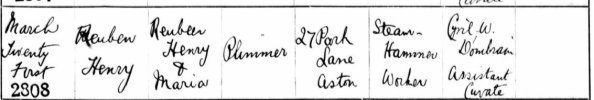 March
Twenty
First
2308
Reuben
Henry
Reuben
Henry
&
Maria
Plimmer
27 Park
Lane
Aston
Steam-
Hammer
Worker
Cyril W.
Dombrain
Assistant
Curate